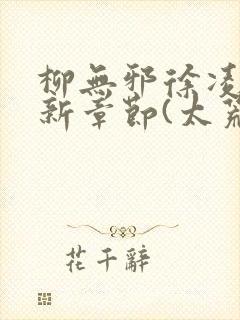 柳無邪徐凌
新章節(太荒
花千辭